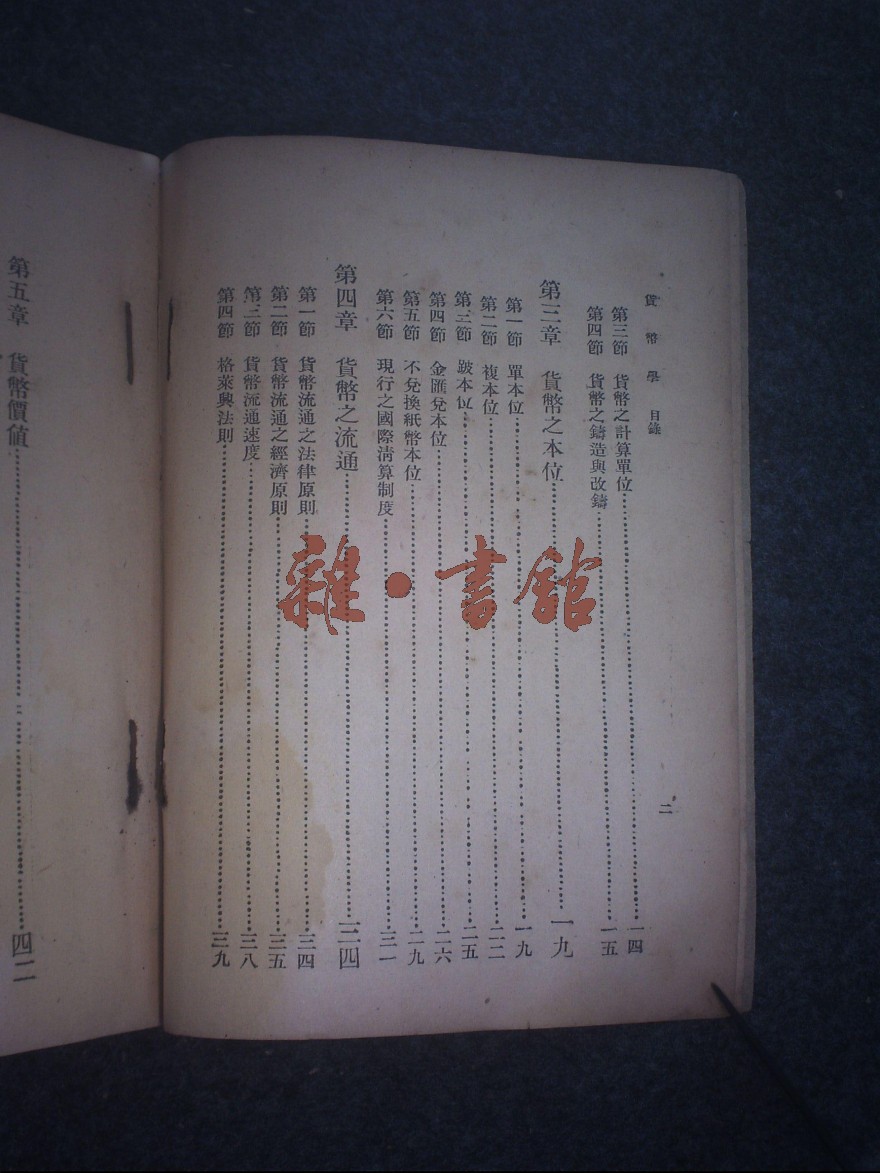 貨幣學 目錄 二
第三節 貨幣之計算單位 一四
第四節 貨幣之鑄造與改鑄 一五
第三章 貨幣之本位 一九
第一節 單本位 一九
第二節 複本位 二二
第三節 跛本位 二五
第四節 金匯兌本位 二六
第五節 不兌換紙幣本位 二九
第六節 現行之國際清算制度 三一
第四章 貨幣之流通 三四
第一節 貨幣流通之法律原則 三四
第二節 貨幣流通之經濟原則 三五
第三節 貨幣流通速度 三八
第四節 格萊興法則 三九
第五章 貨幣價值 四二
雜·書館